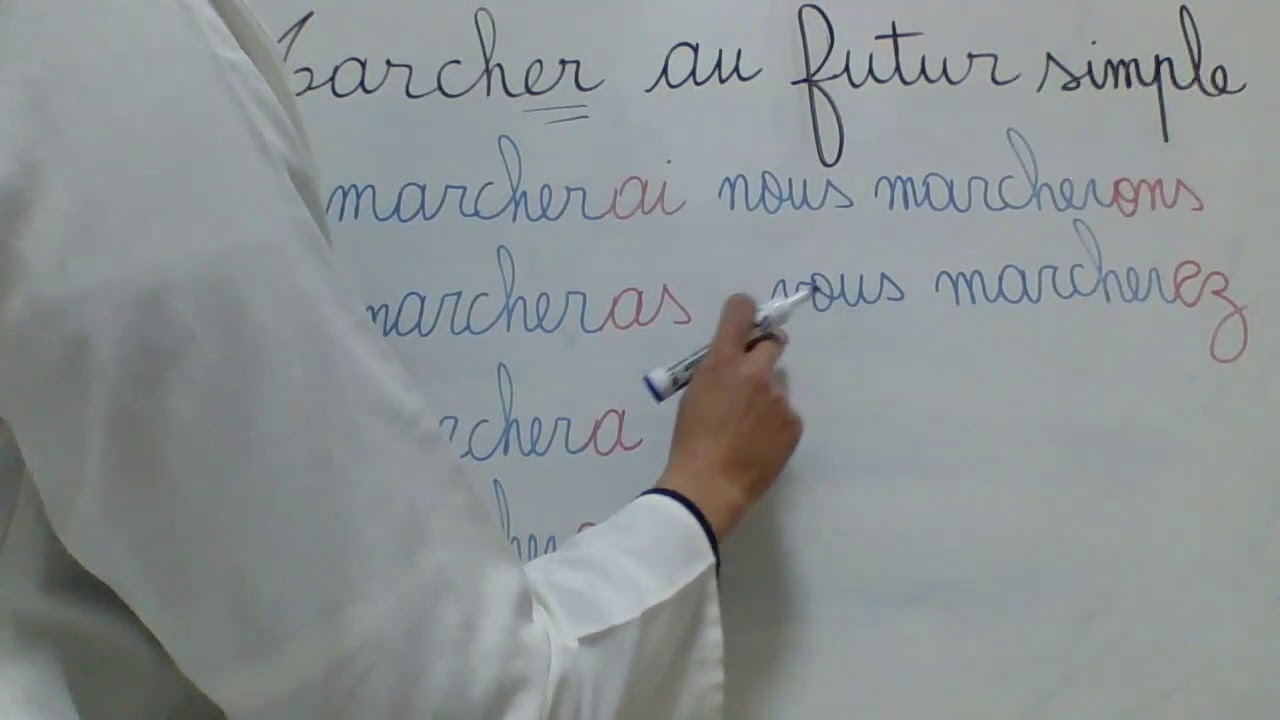 Marcher au futur simple
marcherai nous marcherons
marcheras vous marcherez
rchera